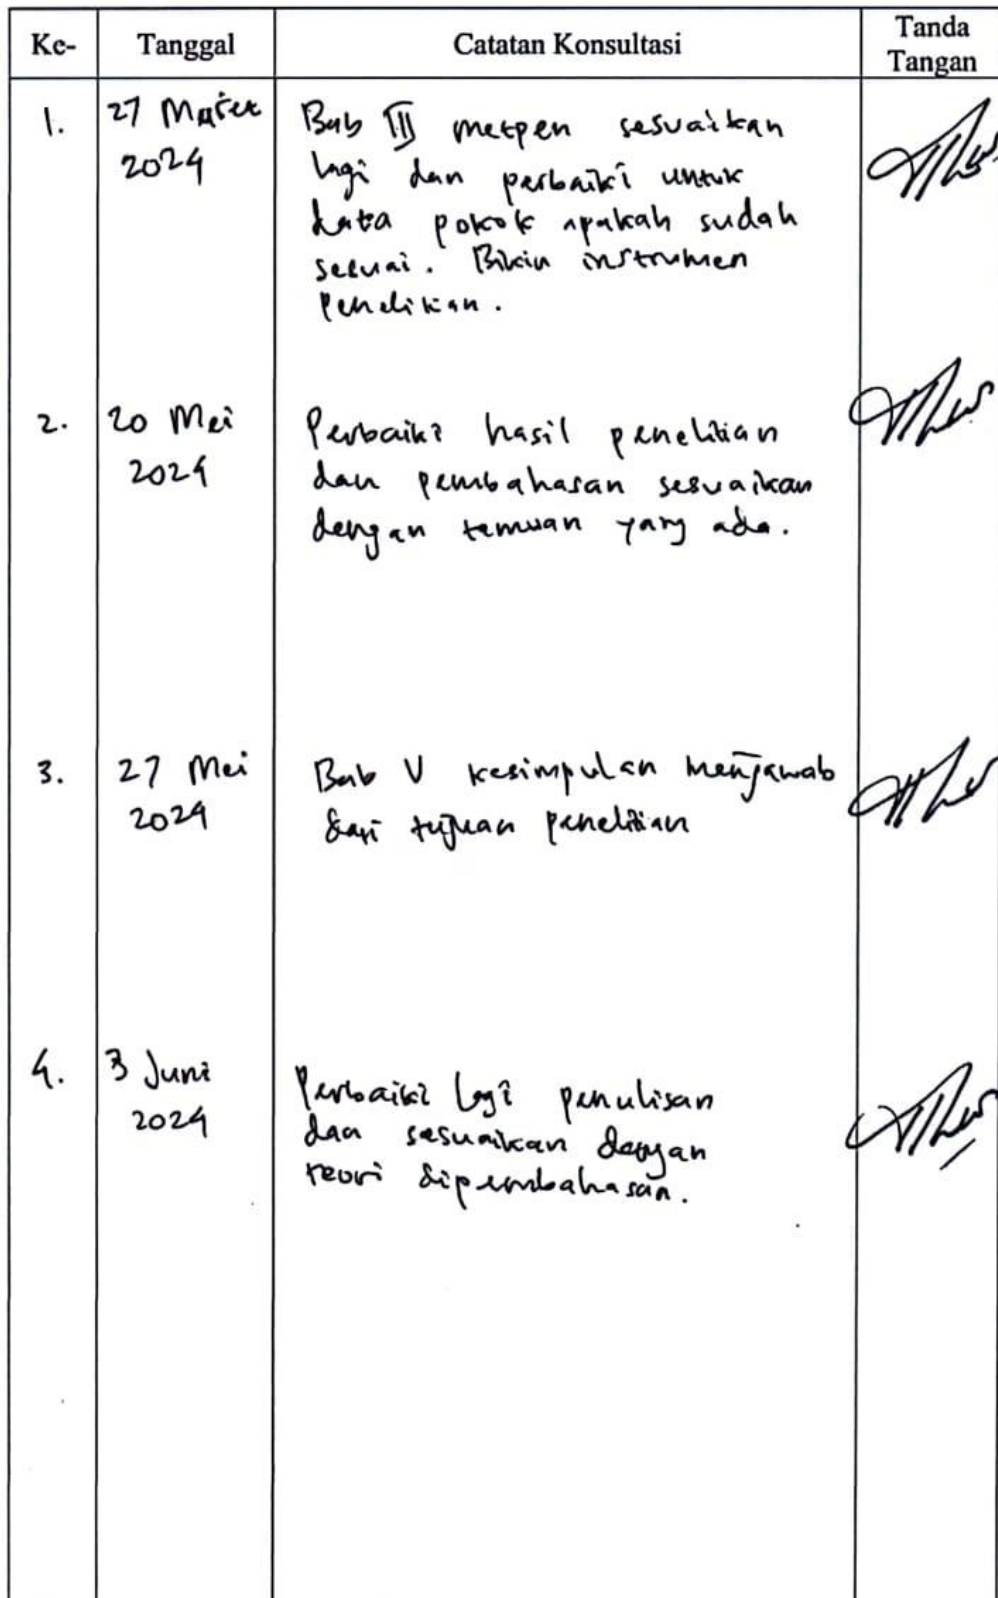 Ke- Tanggal Catatan Konsultasi Tanda Tangan
1. 27 Maret 2024 Bab III metpen sesuaikan
lagi dan perbaiki untuk
data pokok apakah sudah
sesuai. Bikin instrumen
penelitian.
2. 20 Mei 2024 Perbaiki hasil penelitian
dan pembahasan sesuaikan
dengan temuan yang ada.
3. 27 Mei 2024 Bab V kesimpulan menjawab
dari tujuan penelitian
4. 3 Juni 2024 Perbaiki lagi penulisan
dan sesuaikan dengan
teori dipembahasan.